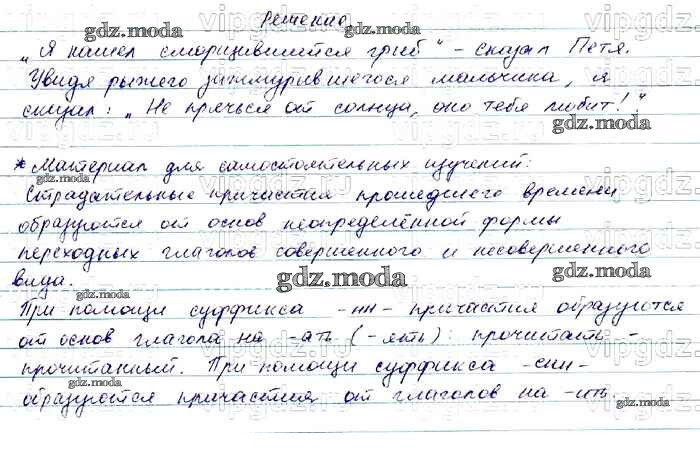 Решение
„Я нашел сморщившийся гриб“ – сказал Петя.
Увидя рыжего зажмурившегося мальчика, я
сказал: „Не прячься от солнца, оно тебя любит!“
* Материал для самостоятельных изучений:
Страдательные причастия прошедшего времени
образуются от основ неопределённой формы
переходных глаголов совершенного и несовершенного
вида.
При помощи суффикса -нн- причастия образуются
от основ глагола на -ать (-ять): прочитать -
прочитанный. При помощи суффикса -енн-
образуются причастия от глаголов на -ить.
gdz.moda
vipgdz.ru